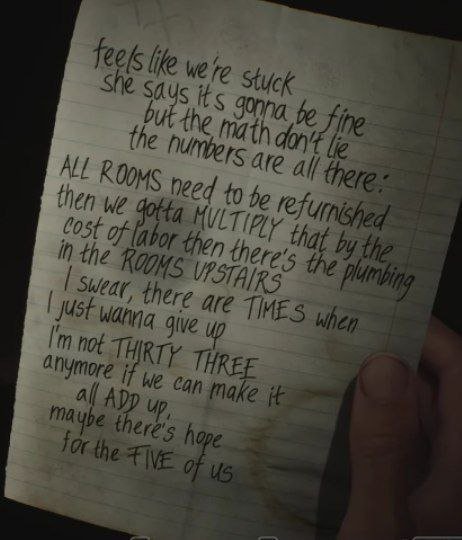 feels like we're stuck
she says it's gonna be fine
but the math don't lie
the numbers are all there:
ALL ROOMS need to be refurnished
then we gotta MULTIPLY that by the
cost of labor then there's the plumbing
in the ROOMS UPSTAIRS
I swear, there are TIMES when
I just wanna give up
I'm not THIRTY THREE
anymore if we can make it
all ADD up,
maybe there's hope
for the FIVE of us